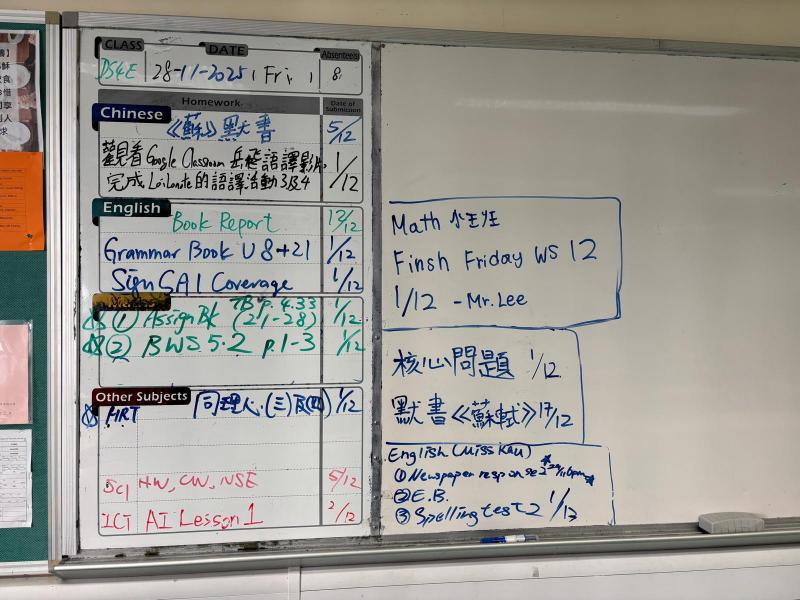 CLASS DATE Absentees
DS4E 28-11-2025, Fri, 8
Homework Date of Submission
Chinese
《蘇》默書 5/12
觀看Google Classroom 岳飛語譯影片 1/12
完成LoiLonote的語譯活動3及4
English
Book Report 12/12
Grammar Book U8+21 1/12
Sign GA1 Coverage 1/12
① Assign Bk TB p.4.33 (21-28) 1/12
② BWS 5.2 p.1-3 1/12
Other Subjects
HRT 1/12
Sci HW, CW, NSE 5/12
ICT AI Lesson 1 2/12
Math
Finsh Friday WS 12
1/12 - Mr. Lee
核心問題 1/12
默書《蘇軾》17/12
English (Miss Kau)
① Newspaper response 2
② E.B.
③ Spelling test 2 1/12